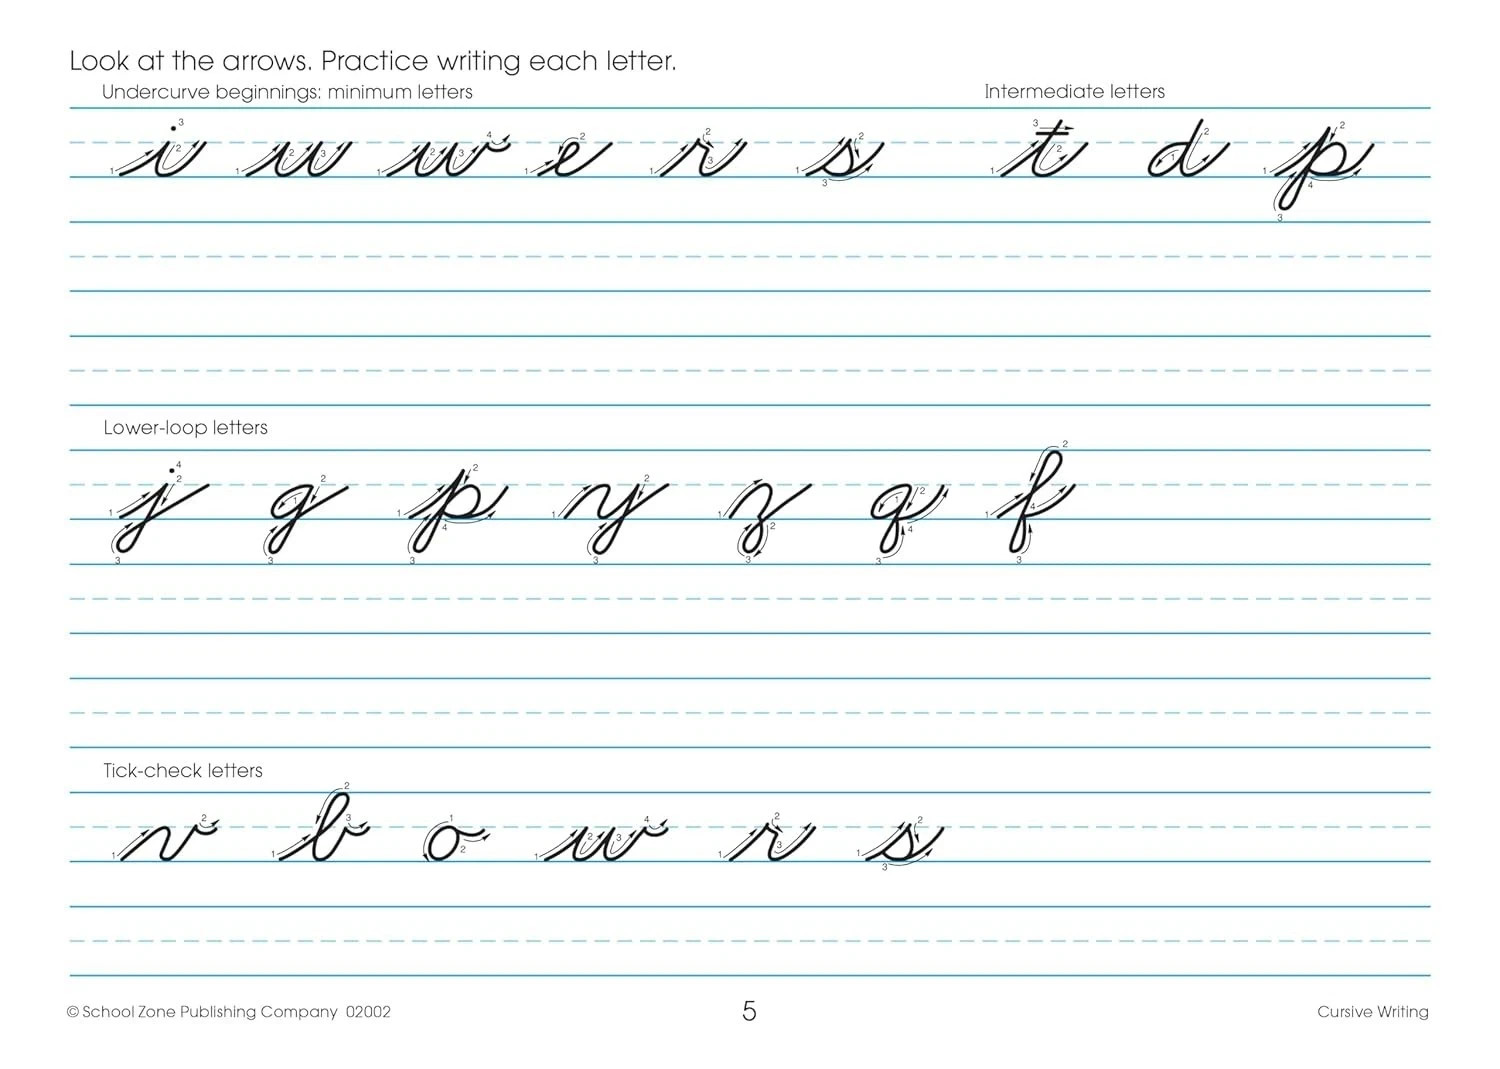 Look at the arrows. Practice writing each letter.
Undercurve beginnings: minimum letters Intermediate letters
i u w e r s t d p
Lower-loop letters
j g p y z q f
Tick-check letters
v b o w r s
© School Zone Publishing Company 02002 5 Cursive Writing